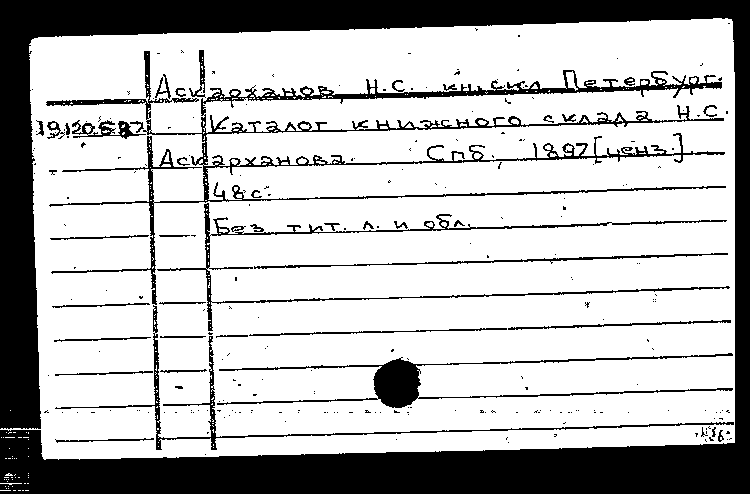 Аскарханов, Н.С. кн. скл Петербург.
Каталог книжного склада Н.С.
Аскарханова. Спб., 1897 [ценз.]
48 с.
Без тит. л. и обл.